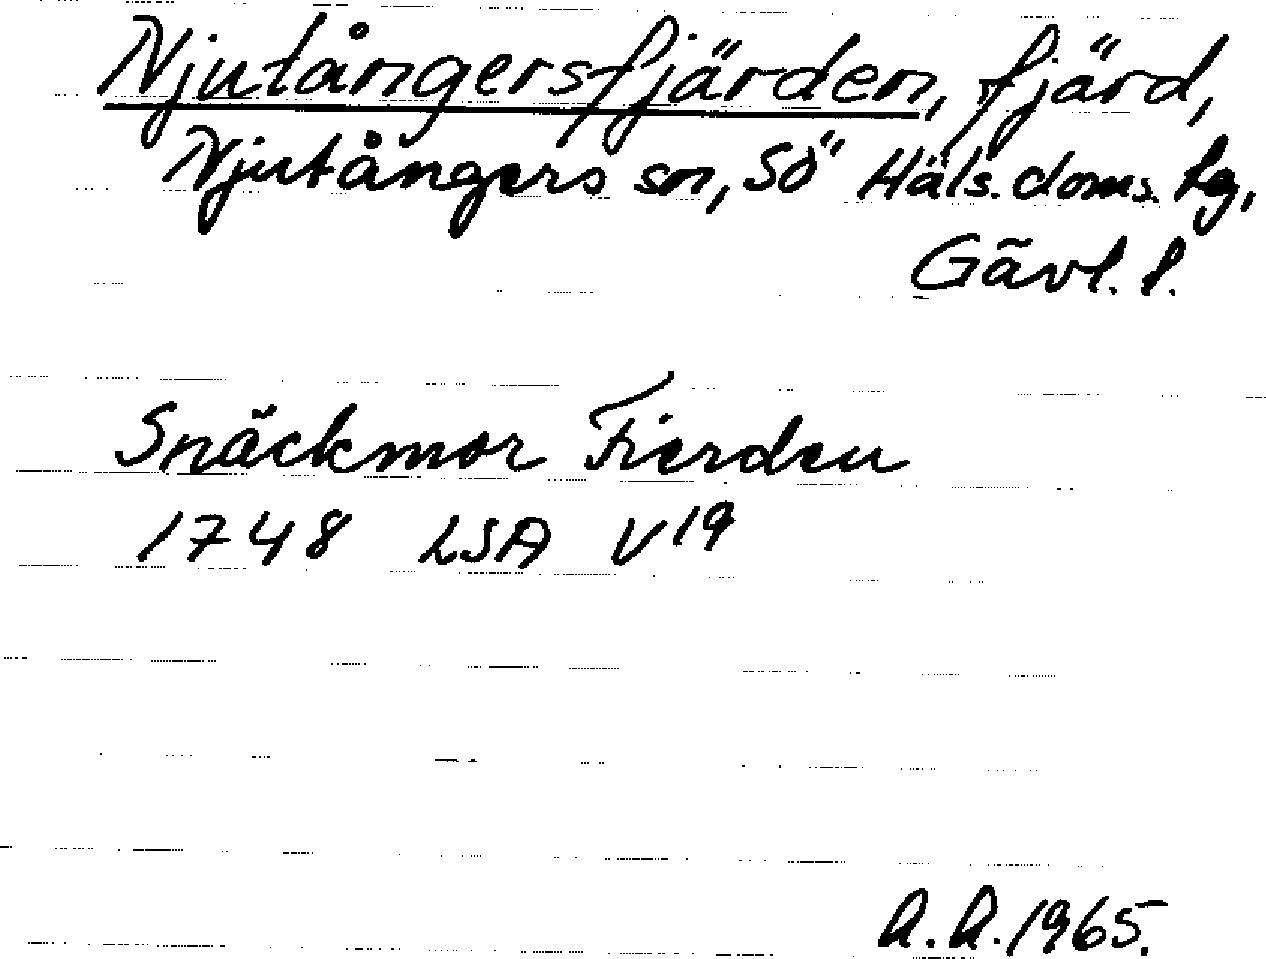 Njutångersfjärden, fjärd,
Njutångers sn, Sö Häls. doms. tg,
Gävl. l.
Snäckmor Fierden
1748 LSA V19
A.A. 1965.